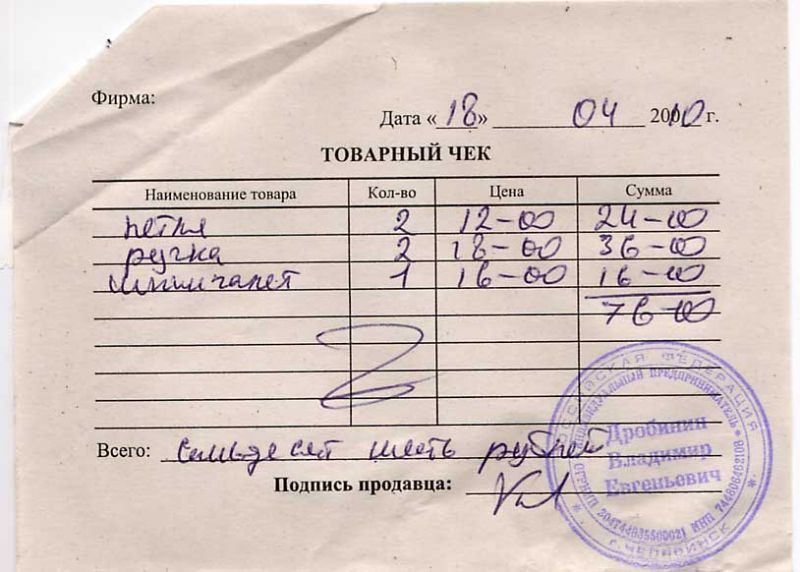 Фирма:
Дата «18» 04 2010 г.
ТОВАРНЫЙ ЧЕК
Наименование товара Кол-во Цена Сумма
петля 2 12-00 24-00
ручка 2 18-00 36-00
шпингалет 1 16-00 16-00
76-00
Всего: семьдесят шесть рублей
Подпись продавца:
РОССИЙСКАЯ ФЕДЕРАЦИЯ
ИНДИВИДУАЛЬНЫЙ ПРЕДПРИНИМАТЕЛЬ
Дробинин
Владимир
Евгеньевич
ИНН 744806462108
г. ЧЕЛЯБИНСК